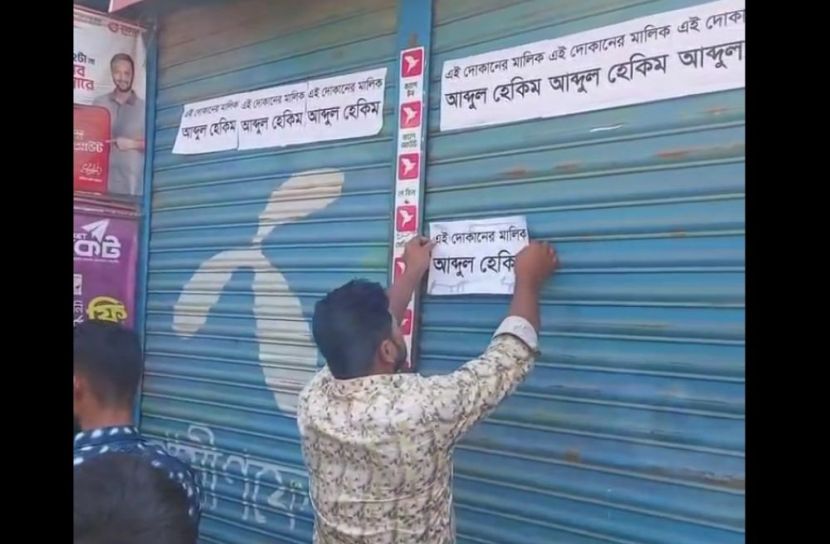 এই দোকানের মালিক এই দোকানের মালিক এই দোকানের মালিক
আব্দুল হেকিম আব্দুল হেকিম আব্দুল হেকিম
এই দোকানের মালিক এই দোকানের মালিক এই দো
আব্দুল হেকিম আব্দুল হেকিম আব্দুল
এই দোকানের মালিক
আব্দুল হেকি